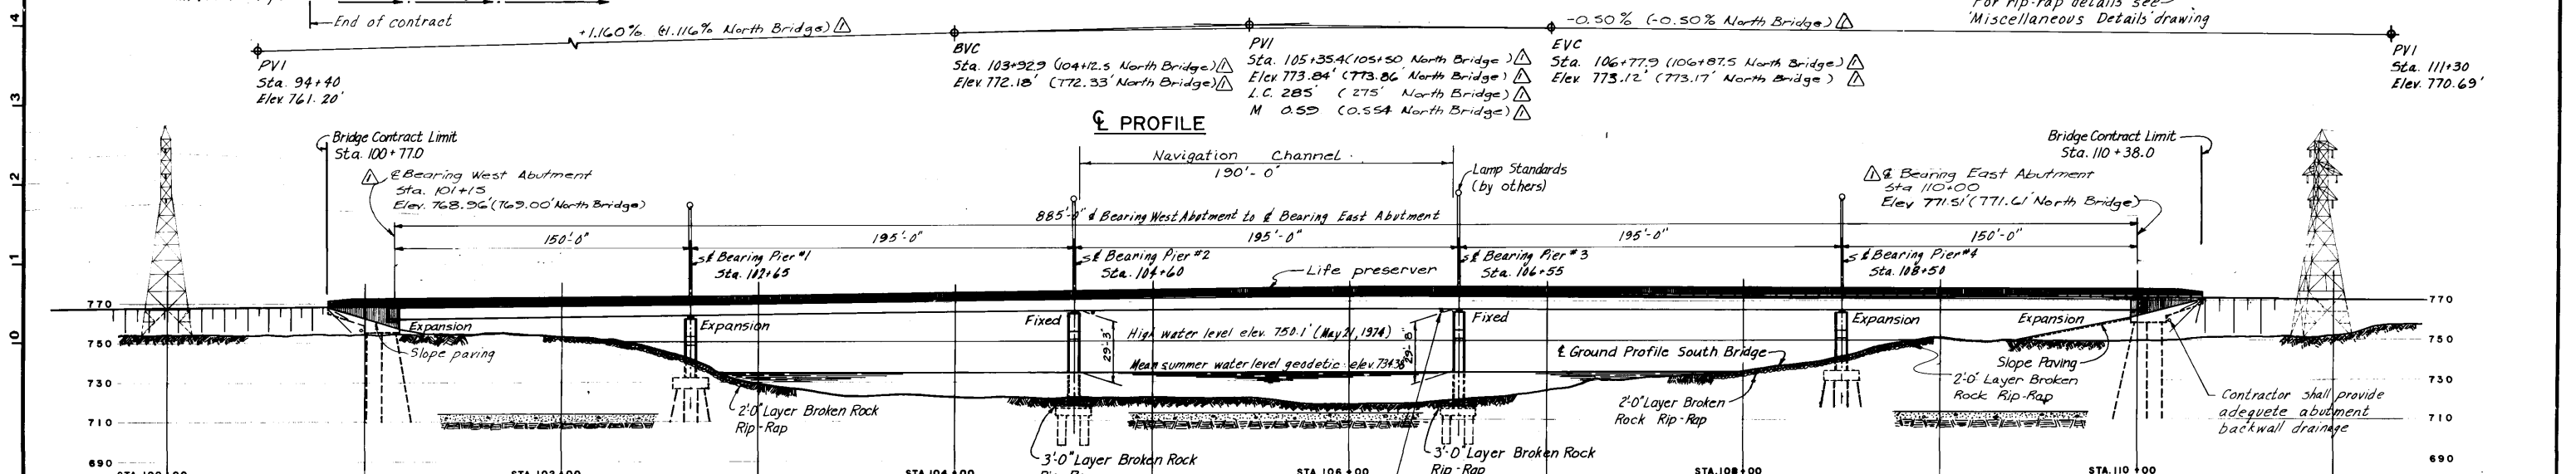 End of contract
+1.160% (+1.116% North Bridge) 1
-0.50% (-0.50% North Bridge) 1
For rip-rap details see
'Miscellaneous Details' drawing
PVI
Sta. 94+40
Elev 761.20'
BVC
Sta. 103+92.9 (104+12.5 North Bridge) 1
Elev 772.18' (772.33' North Bridge) 1
PVI
Sta. 105+35.4 (105+50 North Bridge) 1
Elev 773.84' (773.86' North Bridge) 1
L.C. 285' (275' North Bridge) 1
M 0.59 (0.554 North Bridge) 1
EVC
Sta. 106+77.9 (106+87.5 North Bridge) 1
Elev 773.12' (773.17' North Bridge) 1
PVI
Sta. 111+30
Elev. 770.69'
14
13
12
11
10
℄ PROFILE
Bridge Contract Limit
Sta. 100+77.0
1 ℄ Bearing West Abutment
Sta. 101+15
Elev. 768.96' (769.00' North Bridge)
Navigation Channel
190'-0"
Lamp Standards
(by others)
Bridge Contract Limit
Sta. 110+38.0
1 ℄ Bearing East Abutment
Sta 110+00
Elev 771.51' (771.61' North Bridge)
885'-0" ℄ Bearing West Abutment to ℄ Bearing East Abutment
150'-0"
195'-0"
195'-0"
195'-0"
150'-0"
℄ Bearing Pier #1
Sta. 102+65
℄ Bearing Pier #2
Sta. 104+60
Life preserver
℄ Bearing Pier #3
Sta. 106+55
℄ Bearing Pier #4
Sta. 108+50
770
750
730
710
690
Expansion
Slope paving
Expansion
Fixed
29'-3"
High water level elev. 750.1' (May 21, 1974)
Mean summer water level geodetic elev.
29'-8"
Fixed
℄ Ground Profile South Bridge
Expansion
Expansion
Slope Paving
770
750
730
710
690
2'-0" Layer Broken Rock
Rip-Rap
3'-0" Layer Broken Rock
3'-0" Layer Broken Rock
Rip-Rap
2'-0" Layer Broken
Rock Rip-Rap
2'-0" Layer Broken
Rock Rip-Rap
Contractor shall provide
adequete abutment
backwall drainage
STA. 104+00
STA. 106+00
STA. 108+00
STA. 110+00